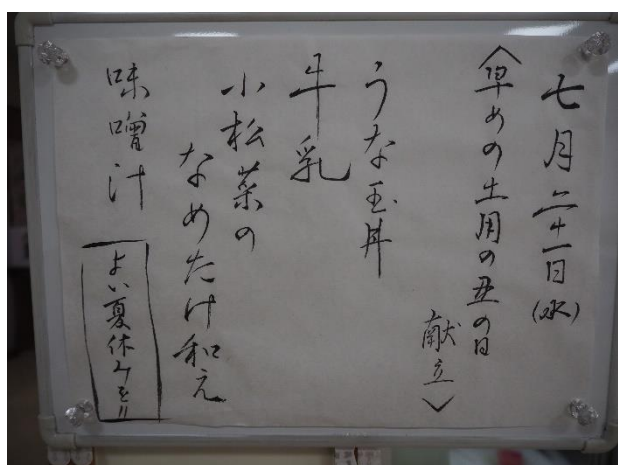 七月二十一日(水)
〈早めの土用の丑の日
献立〉
うな玉丼
牛乳
小松菜の
なめたけ和え
味噌汁
よい夏休みを!!